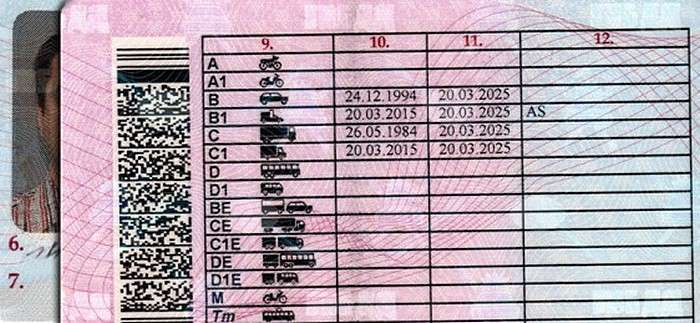 9. 10. 11. 12.
A
A1
B 24.12.1994 20.03.2025
B1 20.03.2015 20.03.2025 AS
C 26.05.1984 20.03.2025
C1 20.03.2015 20.03.2025
D
D1
BE
CE
C1E
DE
6.
D1E
7.
M
Tm